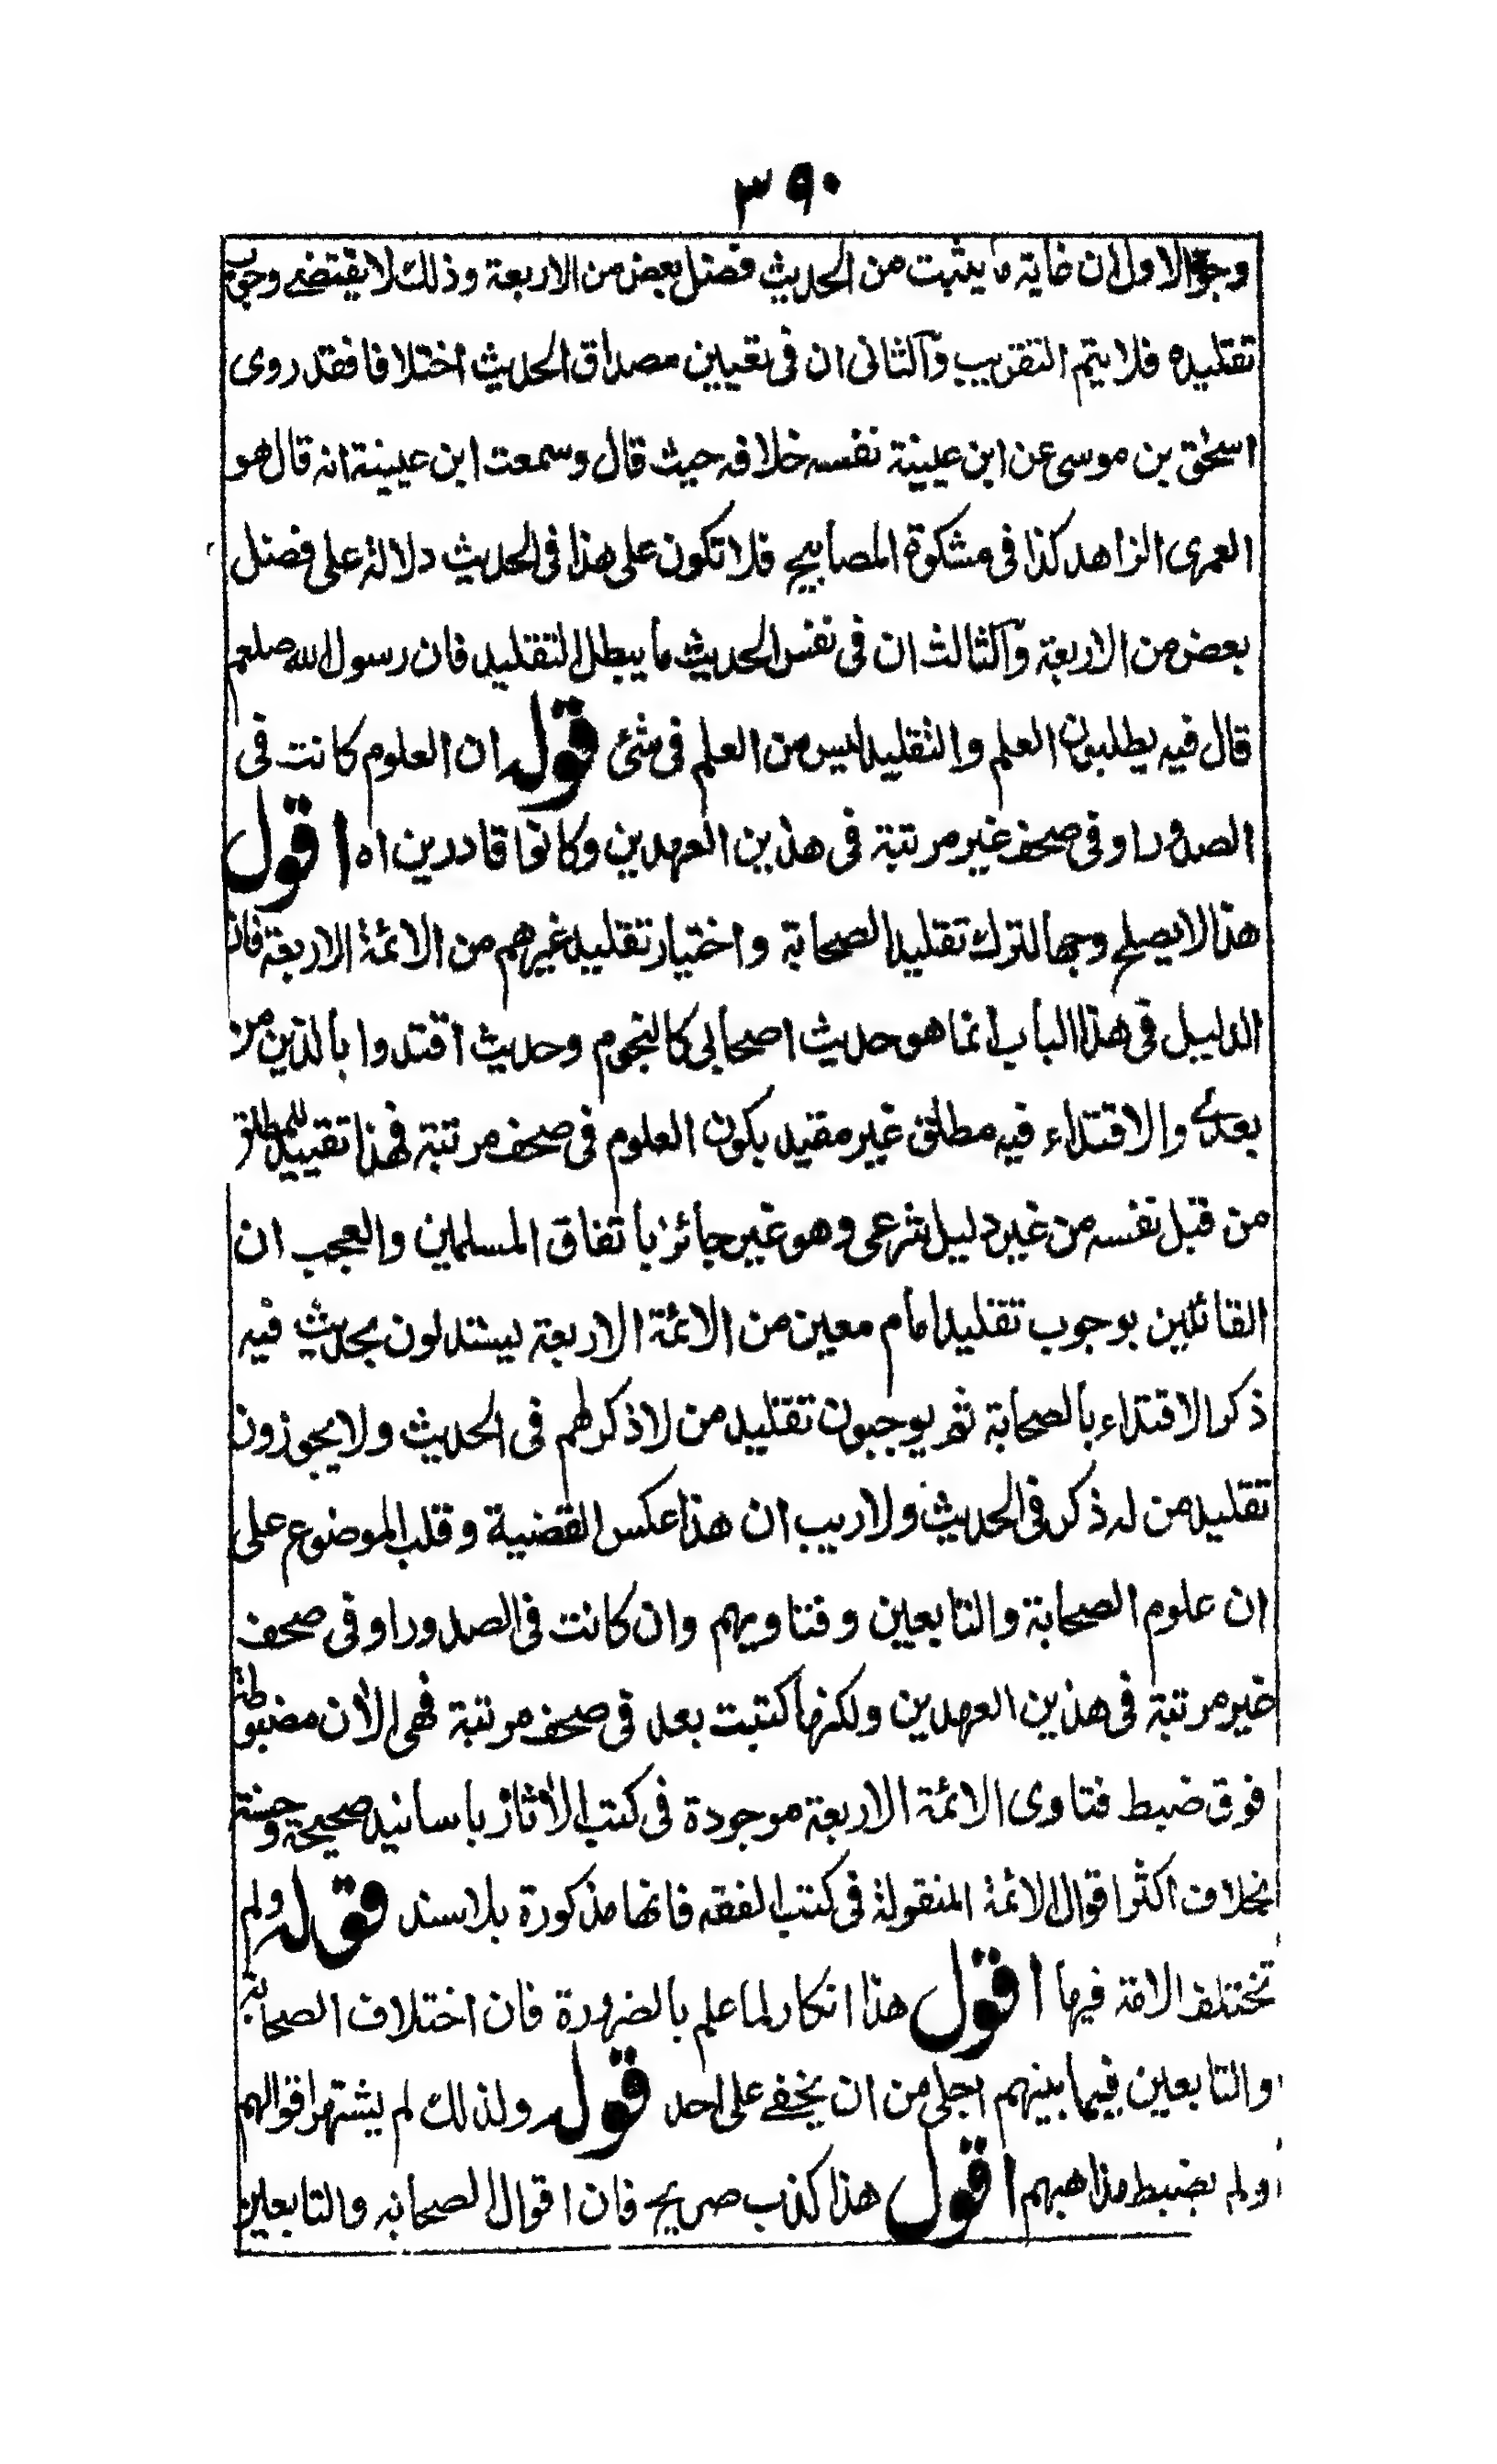 ٣٩٠
وجوه الاول ان غاية ما يثبت من الحديث فضل بعض من الاربعة وذلك لا يقتضے وجوب
تقليده فلا يتم التقريب والثانى ان فى تعيين مصداق الحديث اختلافا فقد روى
اسحٰق بن موسى عن ابن عيينة نفسه خلافه حيث قال وسمعت ابن عيينة انه قال هو
العمرى الزاهد كذا فى مشكوة المصابيح فلا تكون على هذا فى الحديث دلالة على فضل
بعض من الاربعة والثالث ان فى نفس الحديث ما يبطل التقليد فان رسول الله صلعم
قال فيه يطلبون العلم والتقليد ليس من العلم فى شئ قوله ان العلوم كانت فى
الصدور او فى صحف غير مرتبة فى هذين العهدين وكانوا قادرين اه اقول
هذا لا يصلح وجها لترك تقليد الصحابة واختيار تقليد غيرهم من الائمة الاربعة فان
الدليل فى هذا الباب انما هو حديث اصحابى كالنجوم وحديث اقتدوا بالذين من
بعدے والاقتداء فيه مطلق غير مقيد بكون العلوم فى صحف مرتبة فهذا تقييد للمطلق
من قبل نفسه من غير دليل شرعى وهو غير جائز باتفاق المسلمين والعجب ان
القائلين بوجوب تقليد امام معين من الائمة الاربعة يستدلون بحديث فيه
ذكر الاقتداء بالصحابة ثم يوجبون تقليد من لا ذكر لهم فى الحديث ولا يجوزون
تقليد من له ذكر فى الحديث ولا ريب ان هذا عكس القضية وقلب الموضوع على
ان علوم الصحابة والتابعين وفتاويهم وان كانت فى الصدور او فى صحف
غير مرتبة فى هذين العهدين ولكنها كتبت بعد فى صحف مرتبة فهى الاٰن مضبوطة
فوق ضبط فتاوى الائمة الاربعة موجودة فى كتب الاٰثار باسانيد صحيحة وحسنة
بخلاف اكثر اقوال الائمة المنقولة فى كتب الفقه فانها مذكورة بلا سند قوله ولم
تختلف الامة فيها اقول هذا انكار لما علم بالضرورة فان اختلاف الصحابة
والتابعين فيما بينهم اجلى من ان يخفے على احد قوله ولذلك لم يشتهر اقوالهم
ولم يضبط مذاهبهم اقول هذا كذب صريح فان اقوال الصحابه والتابعين